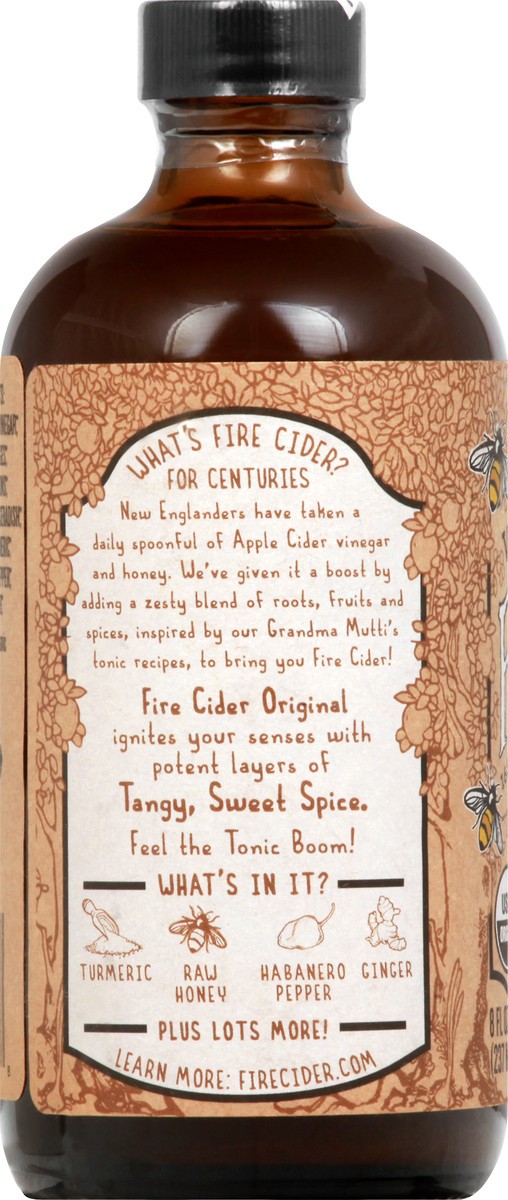 WHAT'S FIRE CIDER?
FOR CENTURIES
New Englanders have taken a
daily spoonful of Apple Cider vinegar
and honey. We've given it a boost by
adding a zesty blend of roots, fruits and
spices, inspired by our Grandma Mutti's
tonic recipes, to bring you Fire Cider!
Fire Cider Original
ignites your senses with
potent layers of
Tangy, Sweet Spice.
Feel the Tonic Boom!
WHAT'S IN IT?
TURMERIC
RAW
HONEY
HABANERO
PEPPER
GINGER
PLUS LOTS MORE!
LEARN MORE: FIRECIDER.COM
8 FL
(237